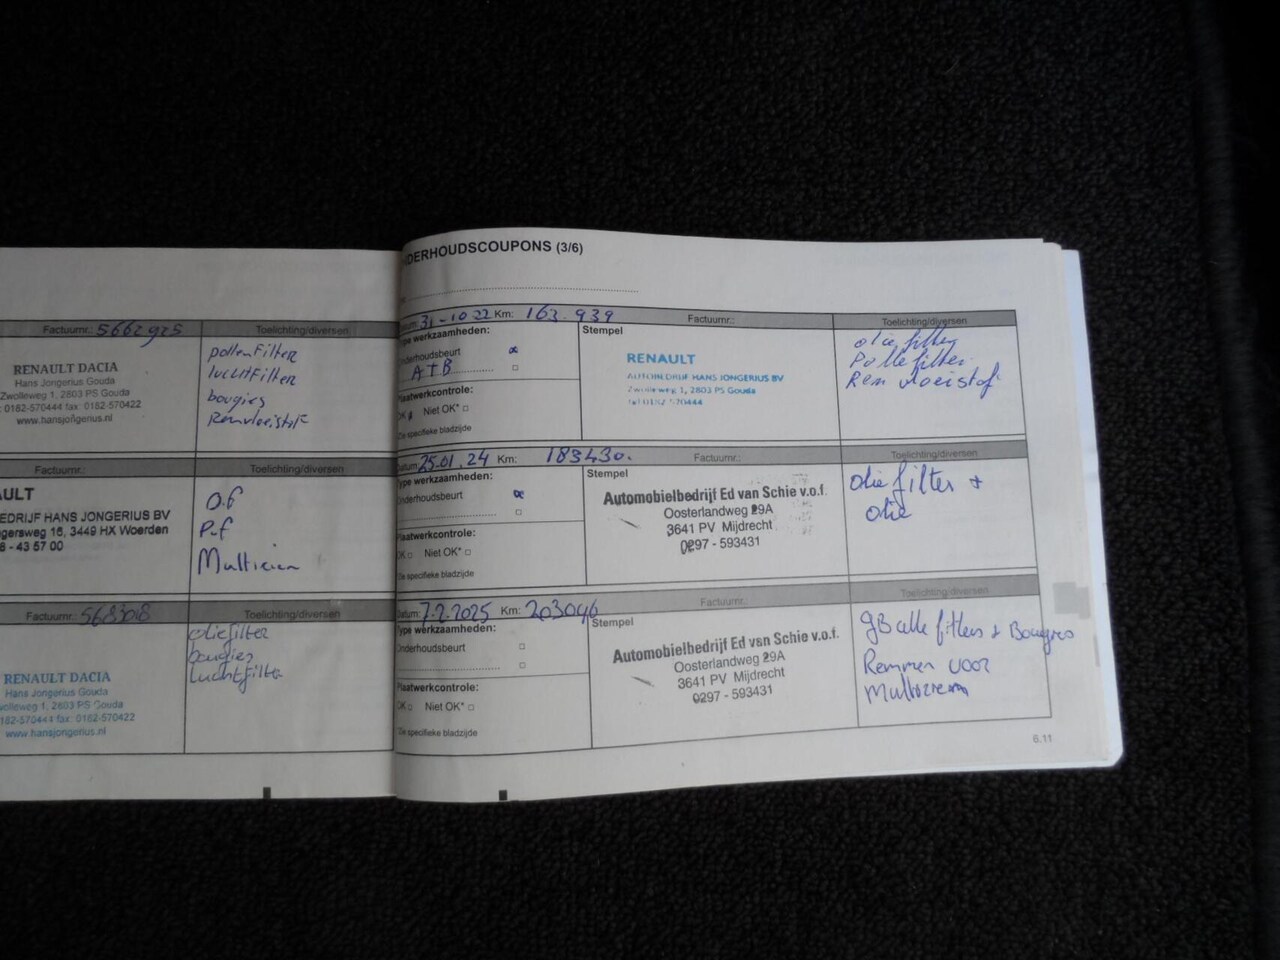 Factuurnr.: 5662925
Toelichting/diversen
RENAULT DACIA
Hans Jongerius Gouda
Zwolleweg 1, 2803 PS Gouda
: 0182-570444 fax: 0182-570422
www.hansjongerius.nl
pollenfilter
luchtfilter
bougies
Remvloeistof
Factuurnr.:
Toelichting/diversen
AULT
EDRIJF HANS JONGERIUS BV
ngersweg 16, 3449 HX Woerden
8 - 43 57 00
O.f
P.f
Multiriem
Factuurnr.: 5683018
Toelichting/diversen
RENAULT DACIA
Hans Jongerius Gouda
wolleweg 1, 2803 PS Gouda
182-570444 fax: 0182-570422
www.hansjongerius.nl
oliefilter
bougies
luchtfilter
DERHOUDSCOUPONS (3/6)
Datum: 31-10-22 Km: 163.939
Factuurnr.:
Toelichting/diversen
Type werkzaamheden:
Onderhoudsbeurt
ATB
Plaatwerkcontrole:
OK Niet OK*
*Zie specifieke bladzijde
Stempel
RENAULT
AUTOBEDRIJF HANS JONGERIUS BV
Zwolleweg 1, 2803 PS Gouda
tel 0182 570444
oliefilter
Pollefilter
Rem vloeistof
Datum: 25.01.24 Km: 183430.
Factuurnr.:
Toelichting/diversen
Type werkzaamheden:
Onderhoudsbeurt
Plaatwerkcontrole:
OK Niet OK*
*Zie specifieke bladzijde
Stempel
Automobielbedrijf Ed van Schie v.o.f.
Oosterlandweg 29A
3641 PV Mijdrecht
0297 - 593431
olie filter +
olie
Datum: 7.2.2025 Km: 203046
Factuurnr.:
Toelichting/diversen
Type werkzaamheden:
Onderhoudsbeurt
Plaatwerkcontrole:
OK Niet OK*
*Zie specifieke bladzijde
Stempel
Automobielbedrijf Ed van Schie v.o.f.
Oosterlandweg 29A
3641 PV Mijdrecht
0297 - 593431
GB alle filters + Bougies
Remmen voor
Multiriem
6.11